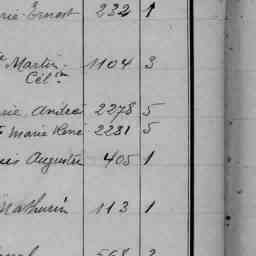 rie Ernest 232 1
Martin- 1104 3
Célin
rie, André 2278 5
Marie René 2281 5
uis Augustin 405 1
Mathurin 113 1
568 2